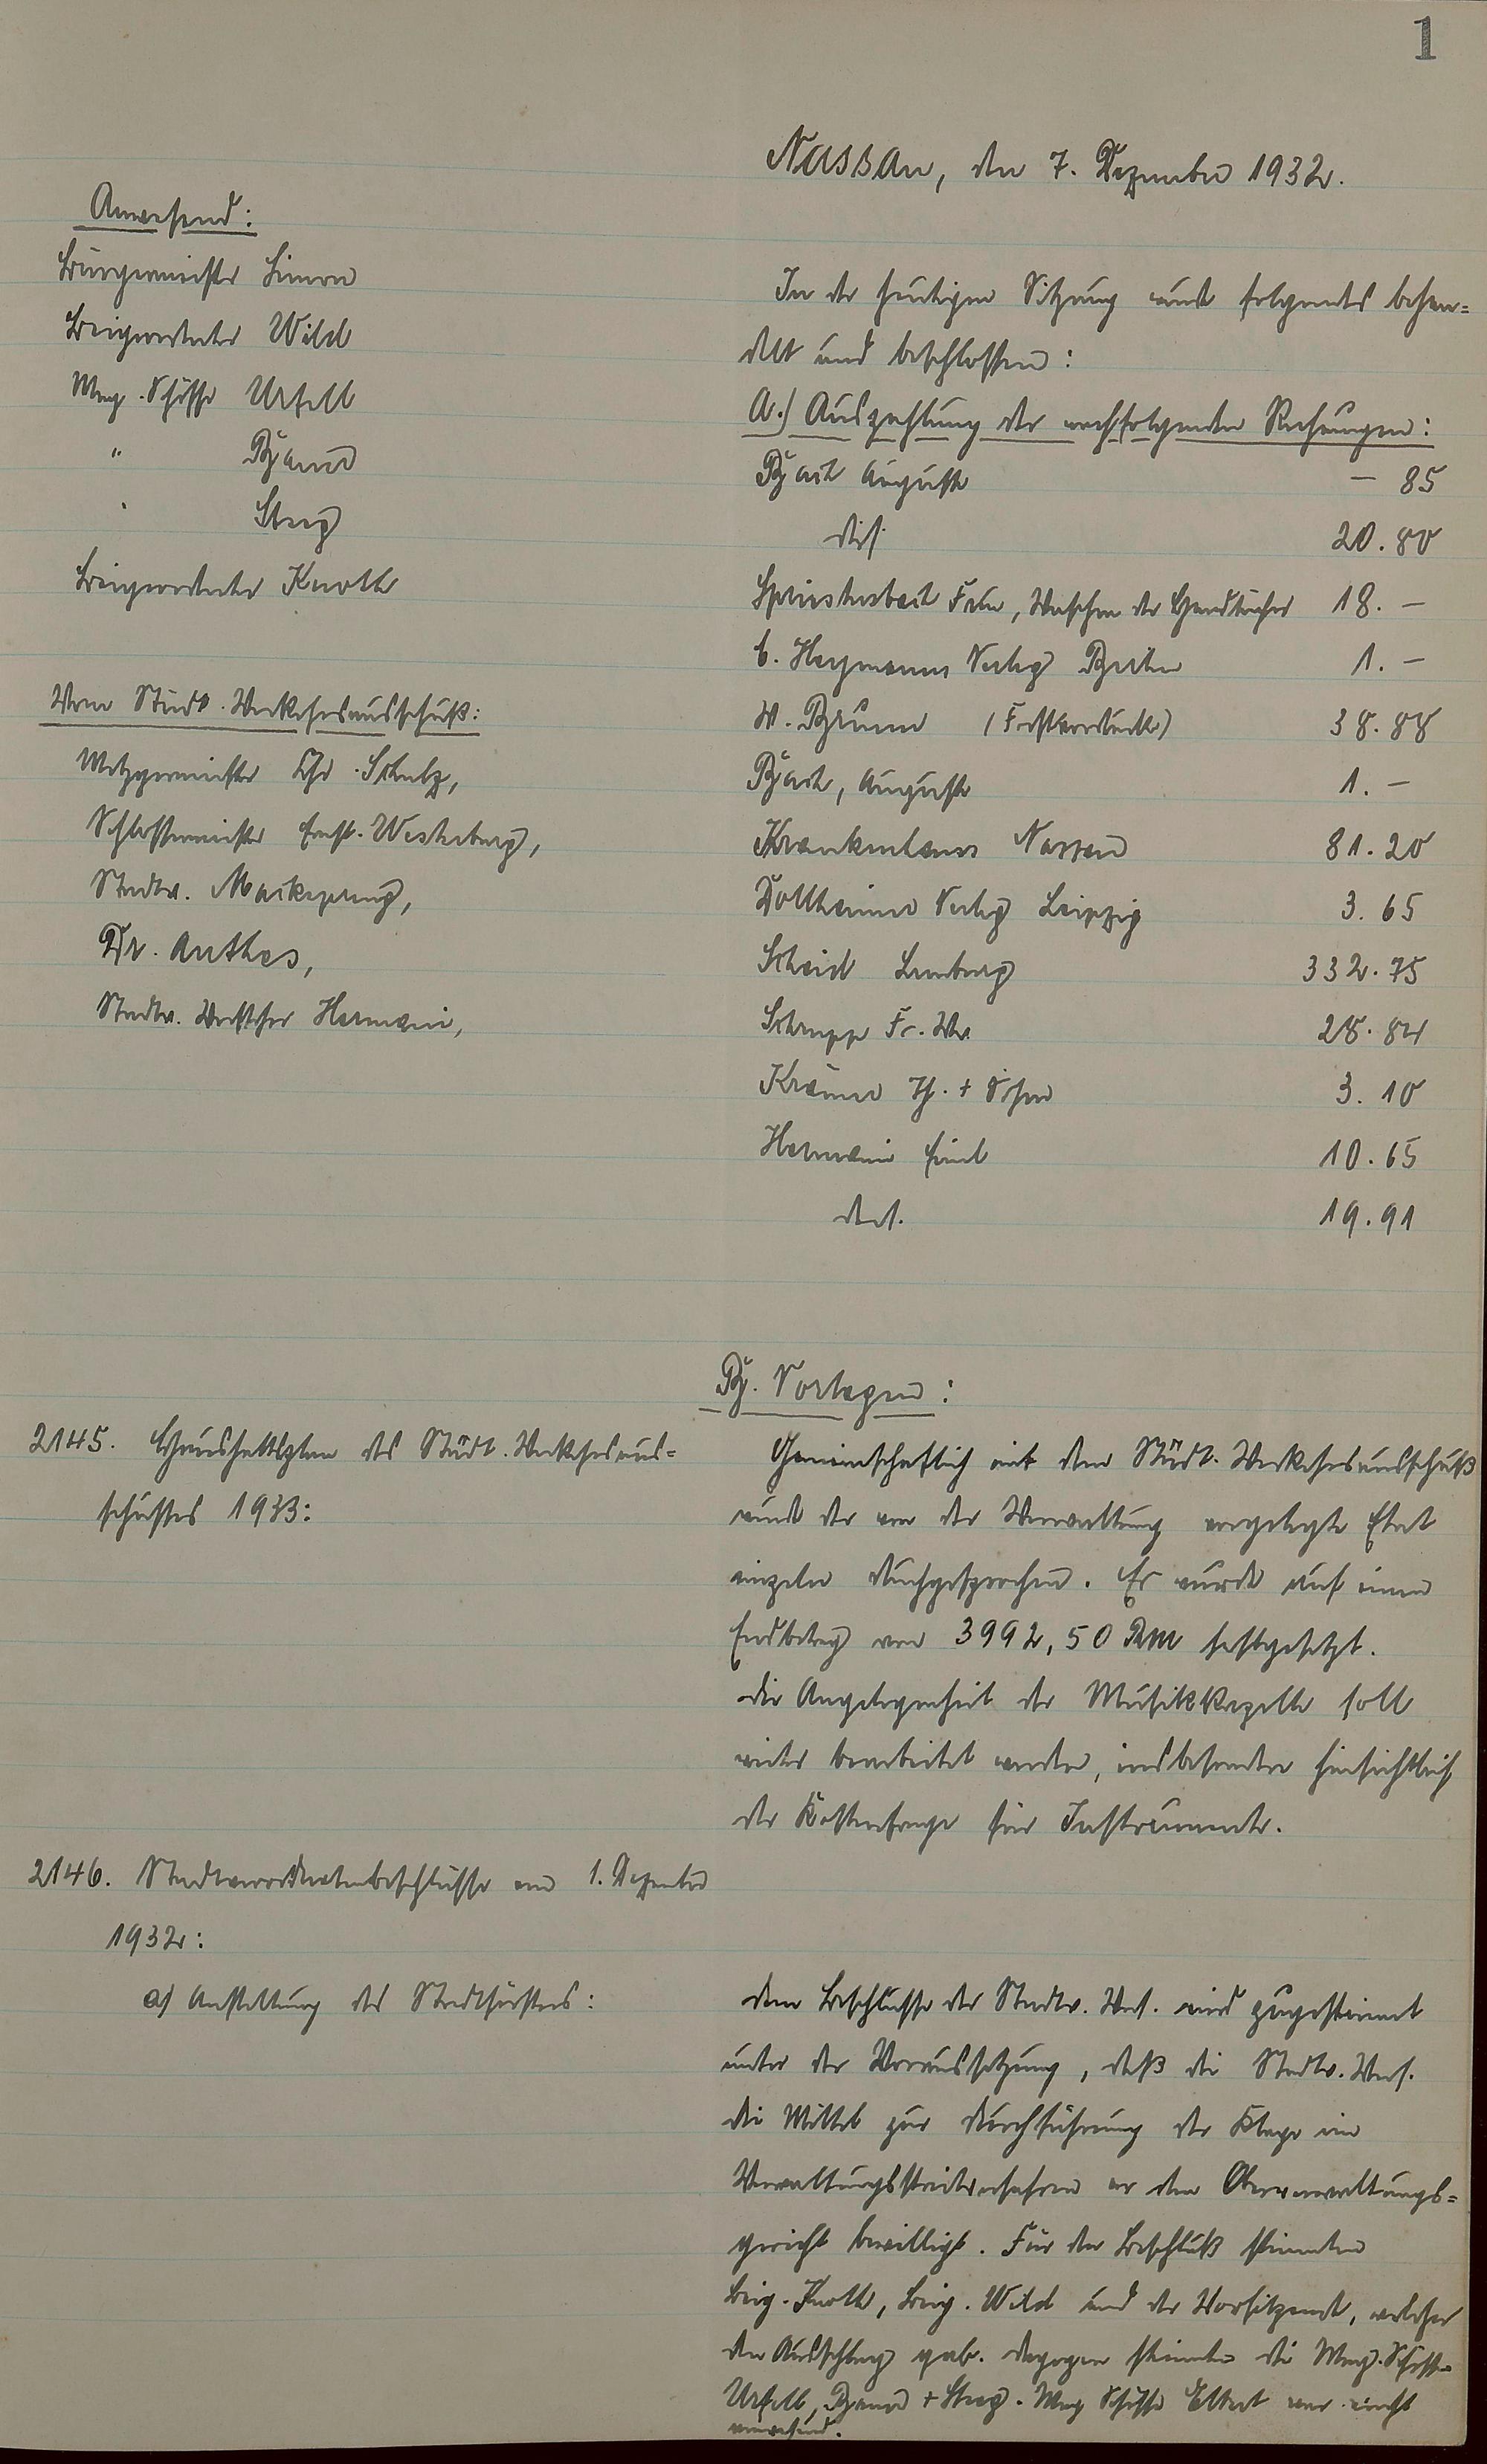 1
Nassau, den 7. Dezember 1932.
Anwesend:
Bürgermeister Simon
Beigeordneter Wild
Mag. Schöffe Urfell
" Baum
" Steeg
Beigeordneter Knoth
Vom Städt. Verkehrsausschuß:
Metzgermeister Chr. Schulz,
Schlossermeister Ernst Westerburg,
Stadtv. Mackeprang,
Dr. Anthes,
Stadtv. Vorsteher Hermani,
In der heutigen Sitzung wurde folgendes behan=
delt und beschlossen:
A.) Auszahlung der nachfolgenden Rechnungen:
Bach Auguste — 85
dies. 20.80
Spriestersbach Frau, Waschen der Handtücher 18. —
C. Heymanns Verlag Berlin 1. —
W. Brunn (Forstverdeckte) 38.88
Bach, Auguste 1. —
Krankenhaus Nassau 81.20
Dollheimer Verlag Leipzig 3.65
Scheid Limburg 332.75
Schrupp Fr. Ww. 28.84
Kramer Th. + Sohn 3.10
Hermani Emil 10.65
ders. 19.91
B. Vorlagen:
2145. Haushaltsplan des Städt. Verkehrsaus=
schusses 1933:
Gemeinschaftlich mit dem Städt. Verkehrsausschuß
wurde der von der Verwaltung vorgelegte Etat
einzeln durchgesprochen. Er wurde auf einen
Endbetrag von 3992,50 RM festgesetzt.
Die Angelegenheit der Musikkapelle soll
weiter bearbeitet werden, insbesondere hinsichtlich
der Kostenfrage für Instrumente.
2146. Stadtverordnetenbeschlüsse vom 1. Dezember
1932:
a) Anstellung des Stadtförsters:
Dem Beschlusse der Stadtv. Vers. wird zugestimmt
unter der Voraussetzung, daß die Stadtv. Vers.
die Mittel zur Durchführung der Klage im
Verwaltungsstreitverfahren vor dem Oberverwaltungs=
gericht bewilligt. Für den Beschluß stimmten
Beig. Knoth, Beig. Wild und der Vorsitzende, welcher
den Ausschlag gab. Dagegen stimmten die Mag. Schöffen
Urfell, Baum + Steeg. Mag. Schöffe Ellert war nicht
anwesend.